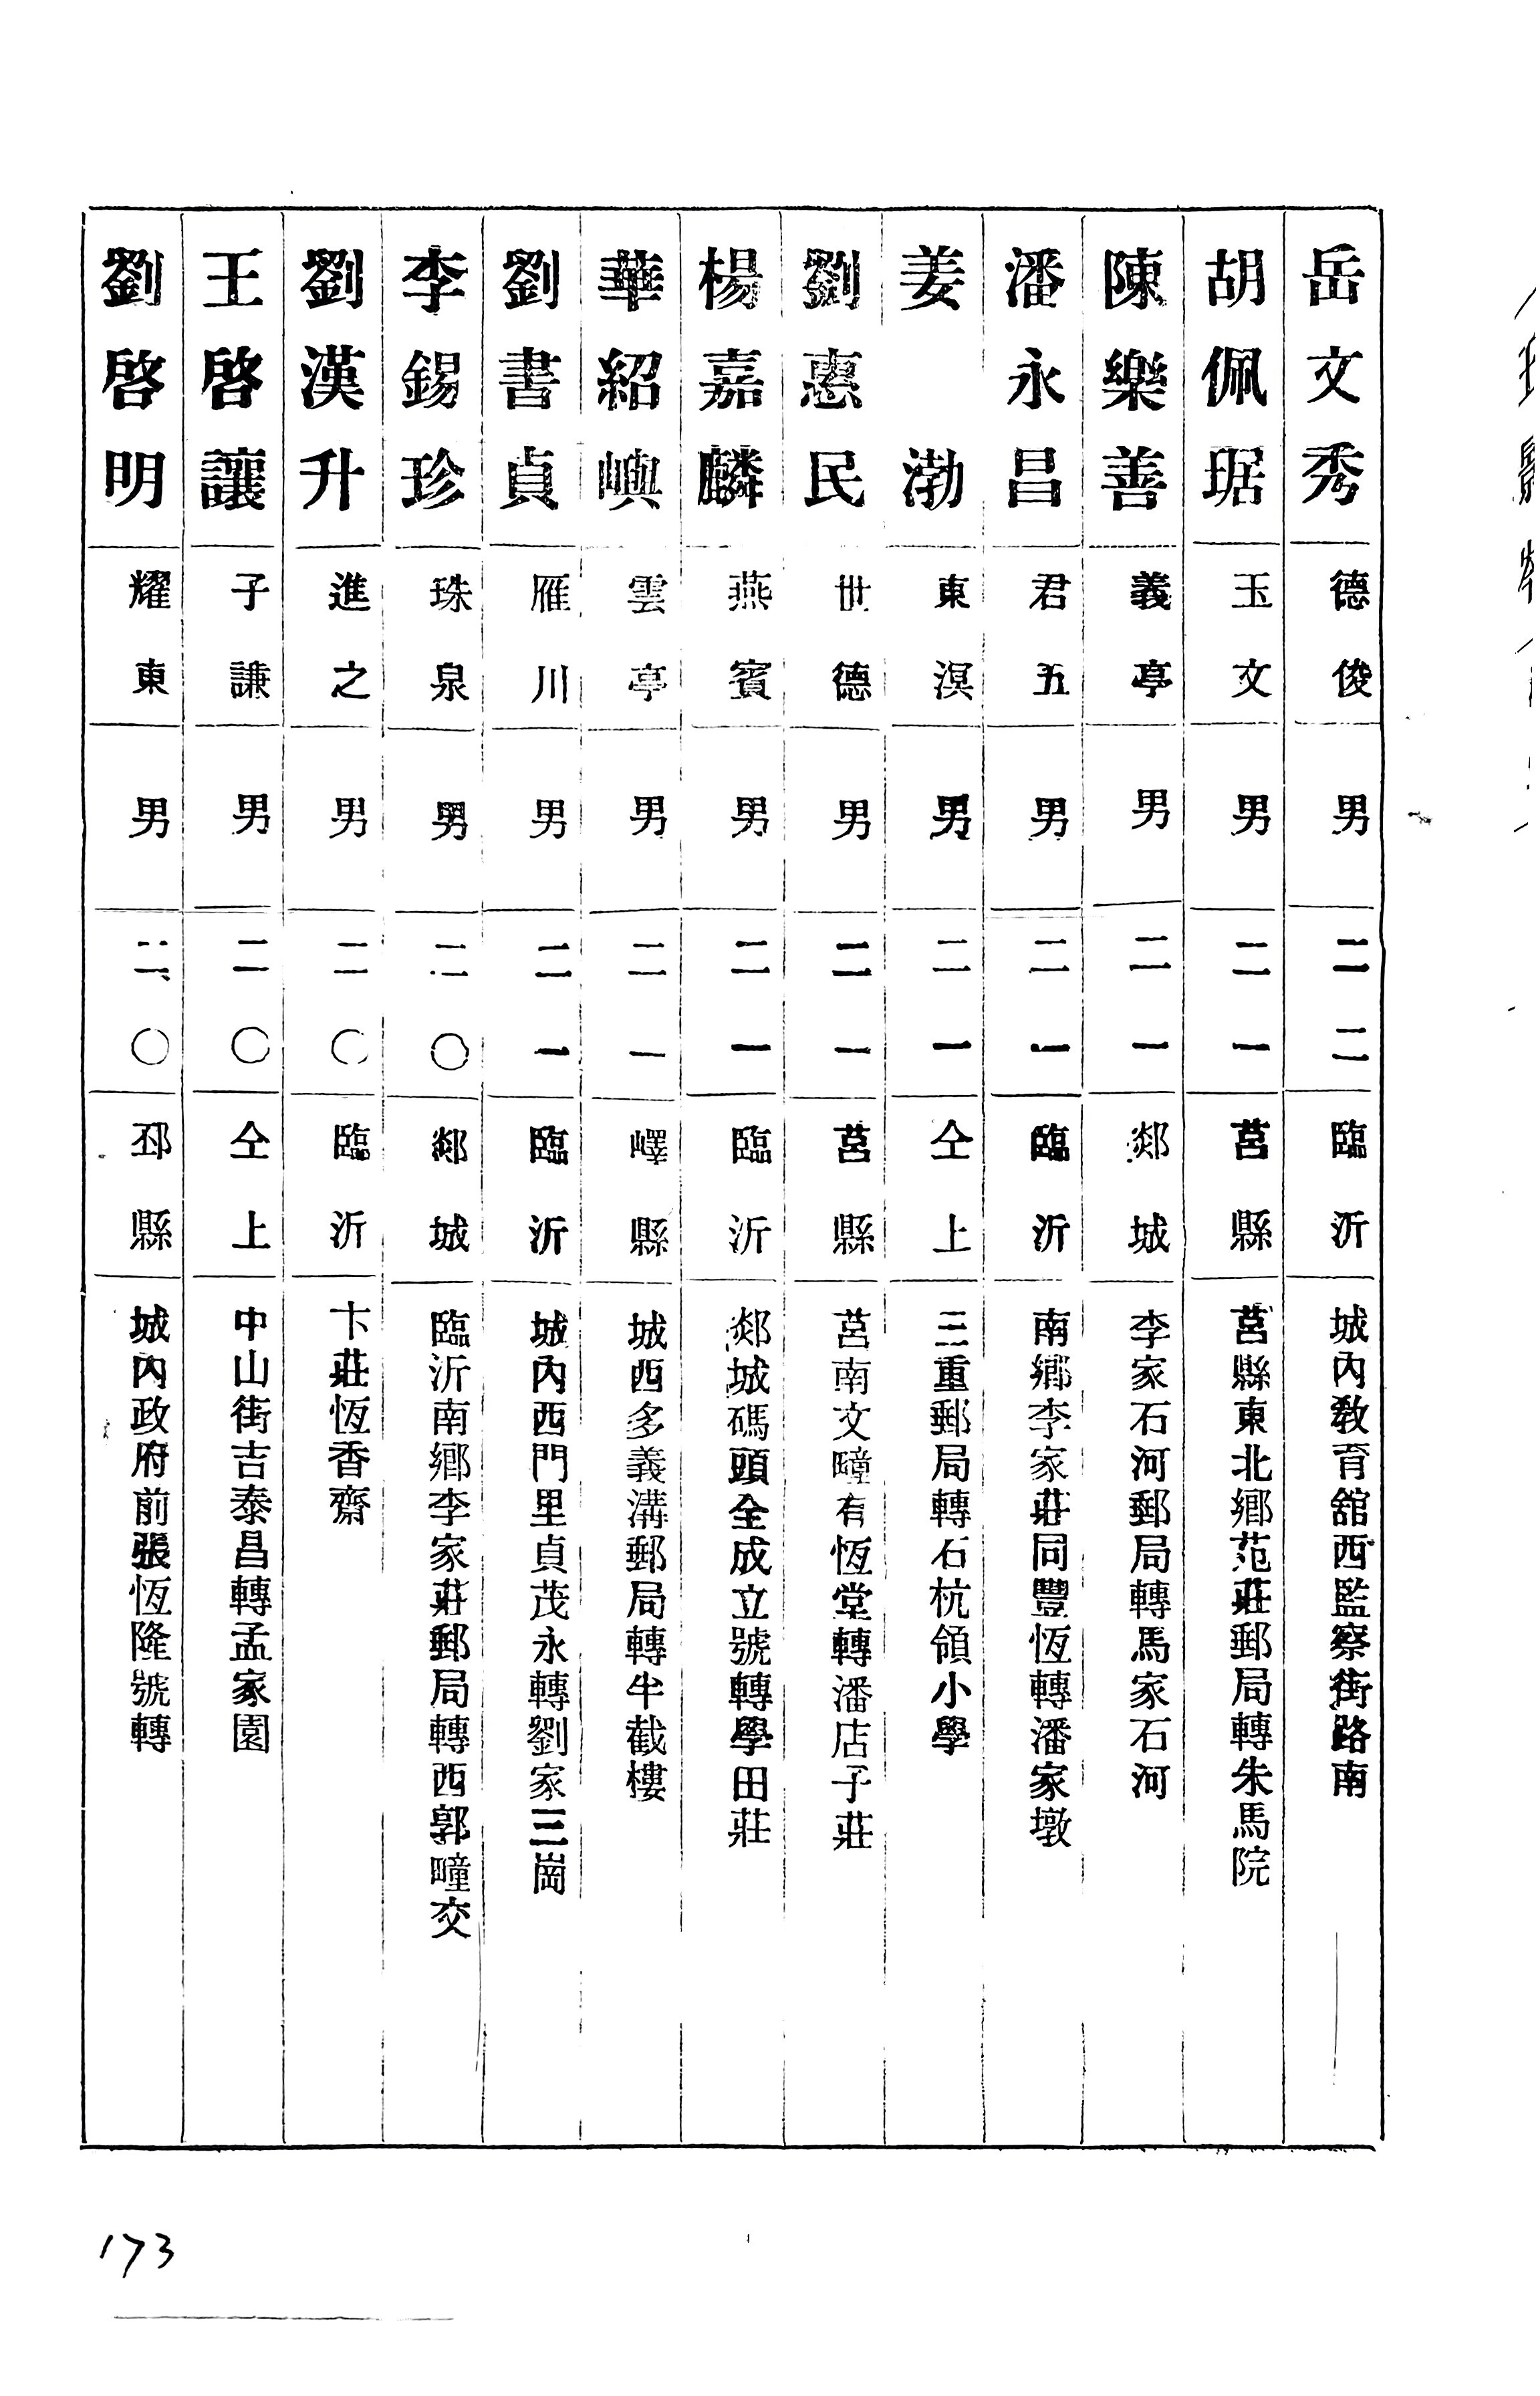 岳文秀 德俊 男 二二 臨沂 城內教育舘西監察街路南
胡佩琚 玉文 男 二一 莒縣 莒縣東北鄉范莊郵局轉朱馬院
陳樂善 義亭 男 二一 郯城 李家石河郵局轉馬家石河
潘永昌 君五 男 二一 臨沂 南鄉李家莊同豐恆轉潘家墩
姜渤 東溟 男 二一 仝上 三重郵局轉石杭領小學
劉惠民 世德 男 二一 莒縣 莒南文疃有恆堂轉潘店子莊
楊嘉麟 燕賓 男 二一 臨沂 郯城碼頭全成立號轉學田莊
華紹嶼 雲亭 男 二一 嶧縣 城西多義溝郵局轉半截樓
劉書貞 雁川 男 二一 臨沂 城內西門里貞茂永轉劉家三崗
李錫珍 珠泉 男 二〇 郯城 臨沂南鄉李家莊郵局轉西郭疃交
劉漢升 進之 男 二〇 臨沂 卞莊恆香齋
王啓讓 子謙 男 二〇 仝上 中山街吉泰昌轉孟家園
劉啓明 耀東 男 二〇 邳縣 城內政府前張恆隆號轉
173